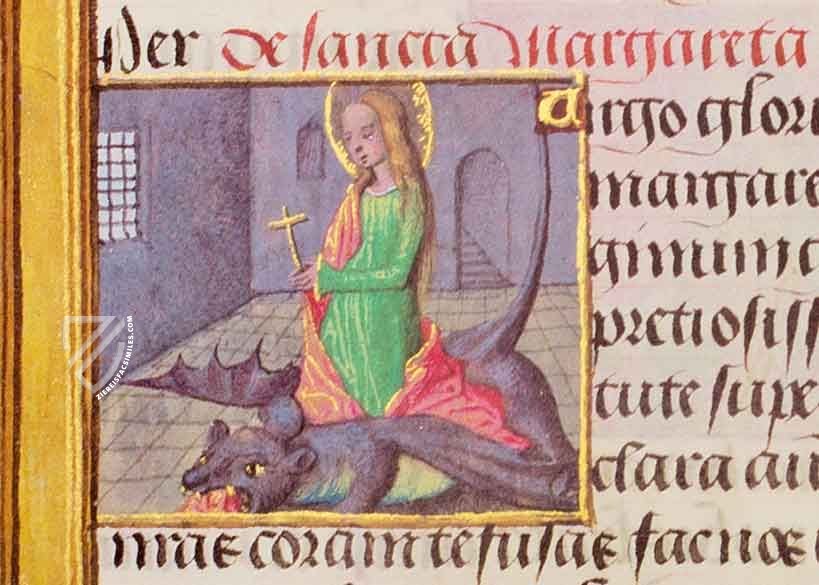 Per De sancta Margareta
Uirgo glori
margare
ginum c
pretiosiss
tute supe
clara au
nras coram te fusas fac nos
ZIEREISFACSIMILES.COM